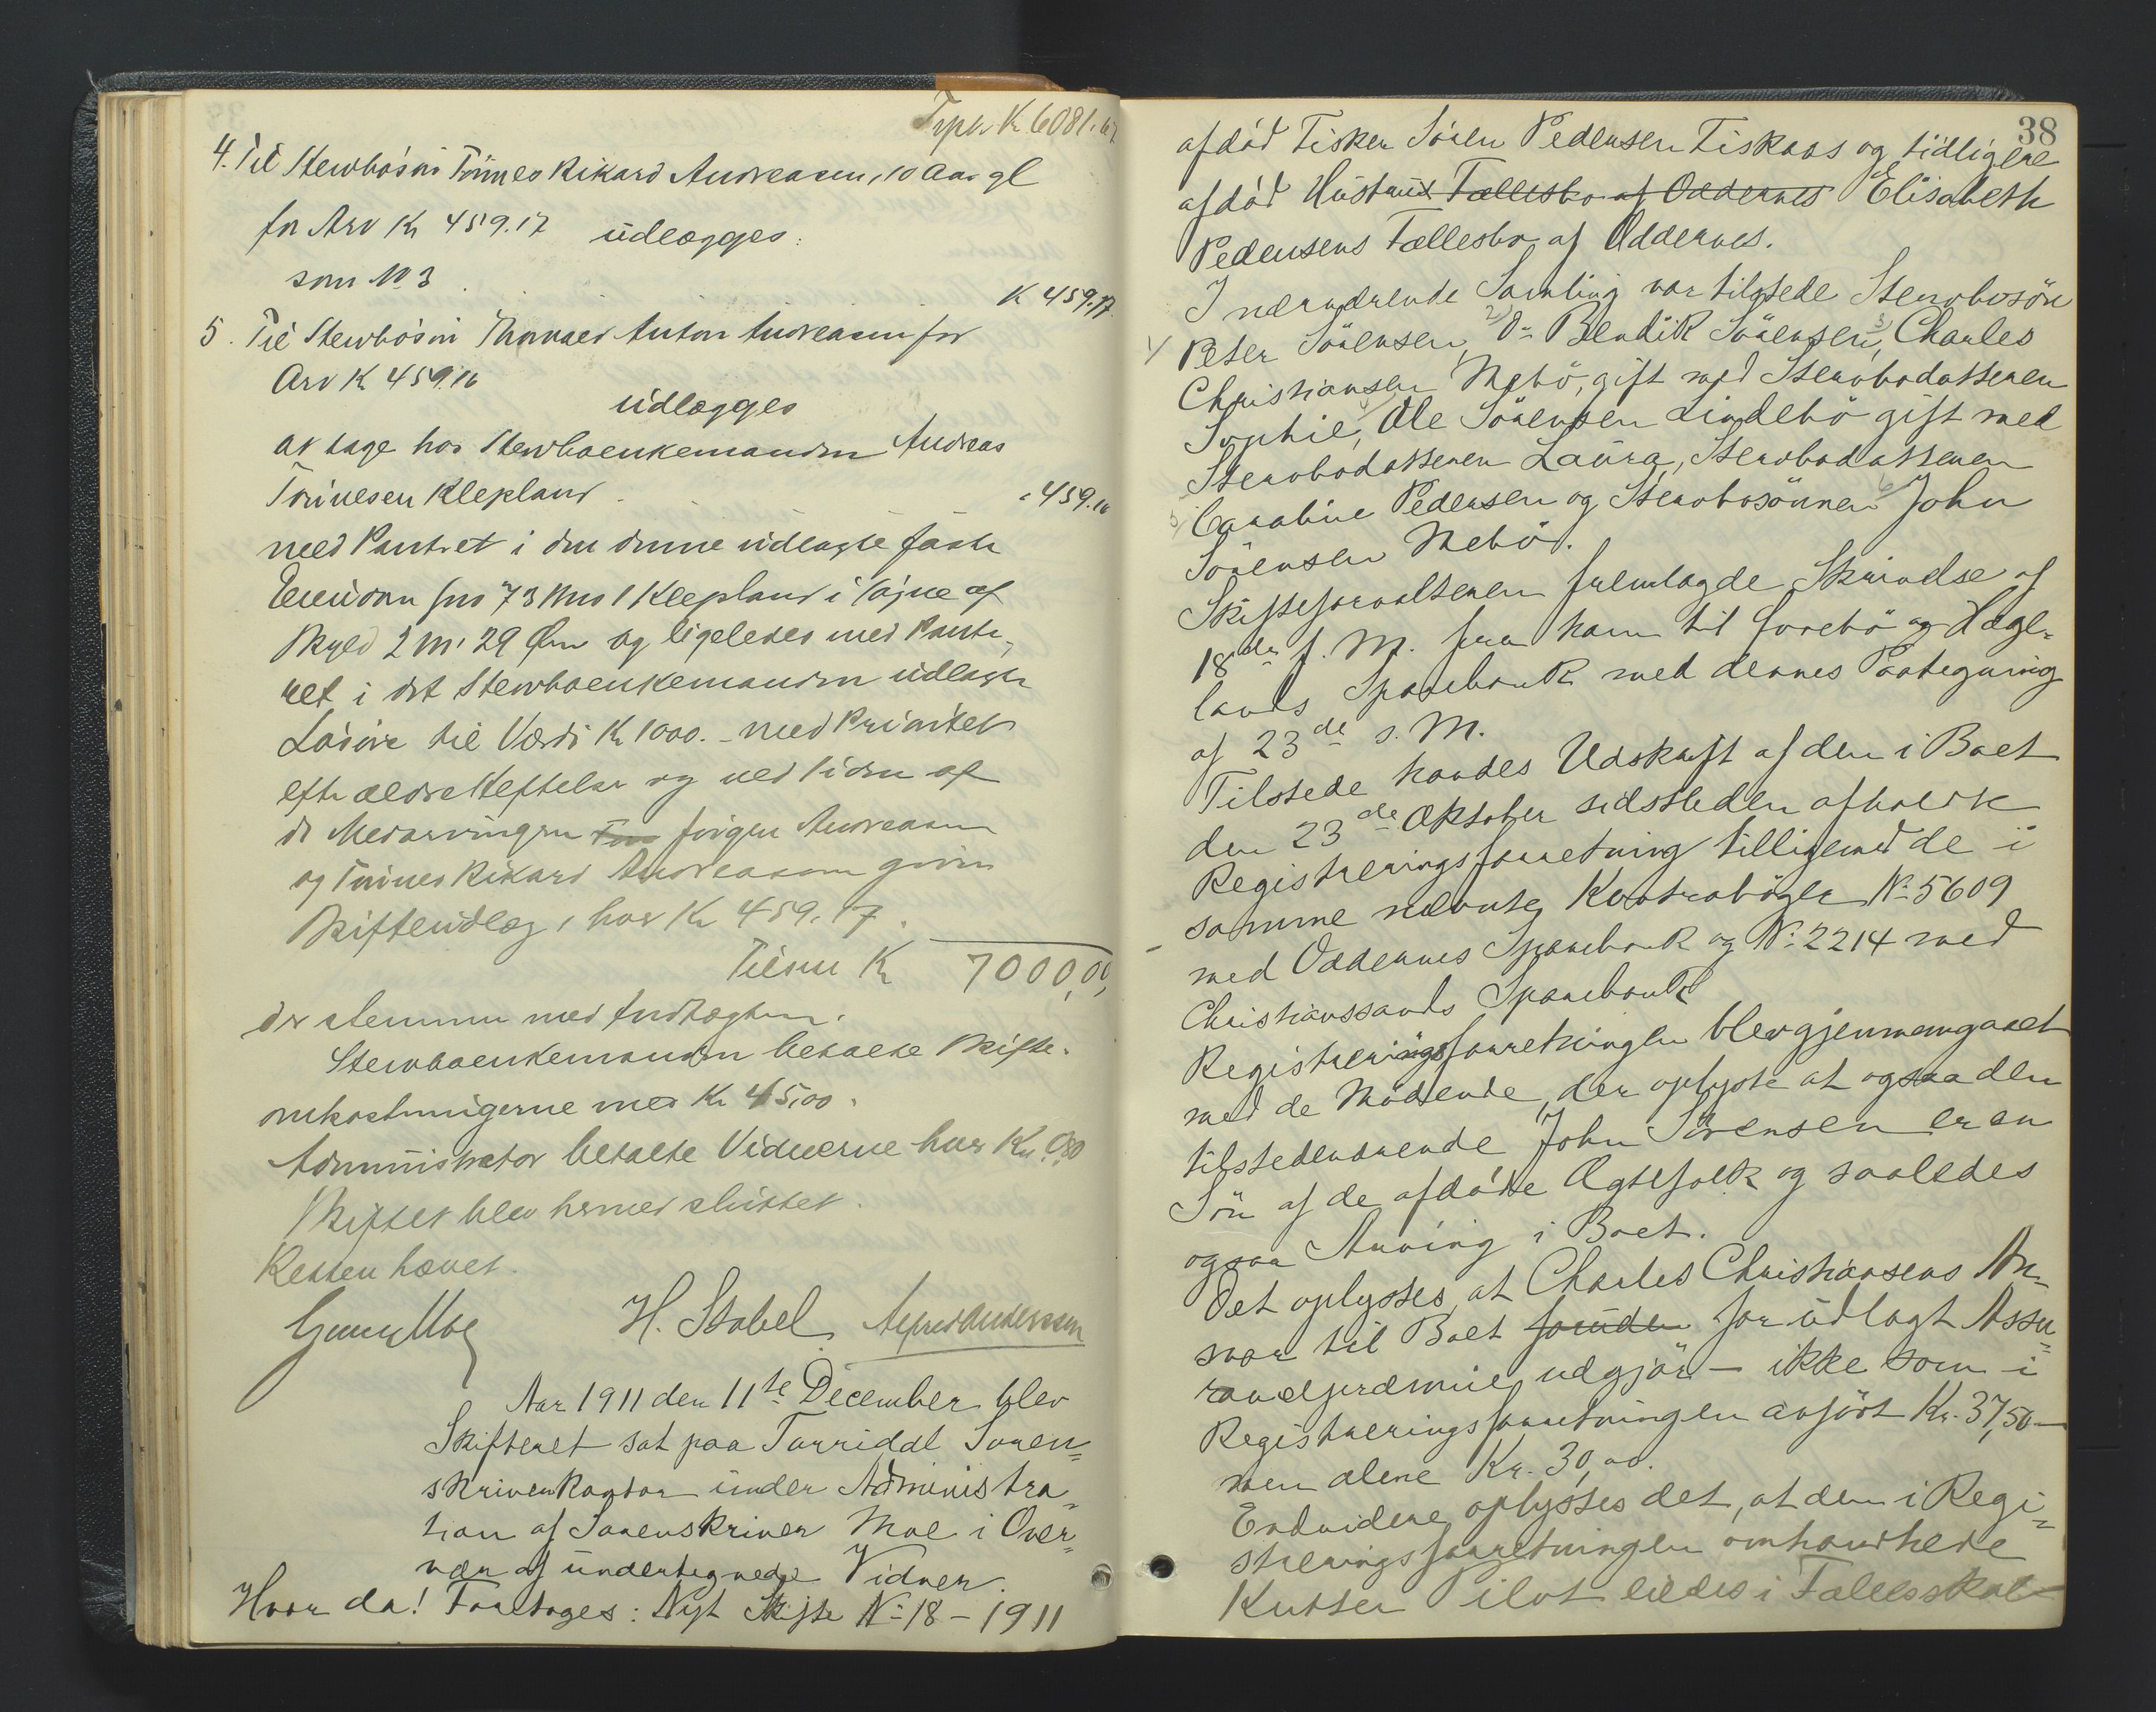 Trpt. Kr 6081.67
4. Til Stervbösön Tönnes Rikard Andreasen, 10 Aar gl
for Arv Kr 459.17 udlægges:
som No 3
K 459.17
5. Til Stervbösön Thomas Anton Andreasen for
Arv K 459.16
udlægges
at tage hos Stervboenkemanden Andreas
Tönnesen Klepland
" 459.16
med Panteret i den denne udlagte faste
Eiendom Gno 73 Bno 1 Klepland i Vegne af
Skyld 2 M. 29 Øre og ligeledes med Pante-
ret i det Stervboenkemanden udlagte
Lösöre til Værdi Kr 1000.- med Prioritet
efter ældre Heftelser og ved Siden af
de Medarvingerne Jörgen Andreasen
og Tönnes Rikard Andreasen givne
Skifteudlæg, hver Kr 459.17.
Tilsm K 7000,00,
der stemmer med Indtægten.
Stervboenkemanden betalte Skifte-
omkostningerne med Kr 45,00.
Administrator betalte Vidnerne hver Kr. 0,80
Skiftet blev hermed sluttet.
Retten hævet.
H. Stabel Alfred Anderssen
Aar 1911 den 11te December blev
Skifteret sat paa Torridal Soren=
skriverkontor under Administra=
tion af Sorenskriver Moe i Over=
vær af undertegnede Vidner.
Hvor da! Foretoges: Nyt Skifte No 18 - 1911
38
afdöd Fisker Sören Pedersen Fiskaas og tidligere
afdöd Hustru Fællesbo af Oddernes Elisabeth
Pedersens Fællesbo af Oddernes.
I nærværende Samling var tilstede Stervbosön
1/ Peter Sörensen, 2) Do Bendik Sörensen, 3) Charles
Christiansen Mebö, gift med Stervbodatteren
Sophie, 4) Ole Sörensen Lindebö gift med
Stervbodatteren Laura, Stervbodatteren
5) Caroline Pedersen og Stervbosönnen 6) John
Sörensen Mebö.
Skifteforvalteren fremlagde Skrivelse af
18de f. M. fra ham til Greebö og Haage=
lands Sparebank med dennes Paategning
af 23de s. M.
Tilstede havdes Udskrift af den i Boet
den 23de Oktober sidstleden afholdte
Registreringsforretning tilligemed de i
samme nævnte Kontraböger No 5609
med Oddernes Sparebank og No 2214 med
Christianssands Sparebank
Registreringsforretningen blev gjennemgaaet
med de Mödende, der oplyste at ogsaa den
tilstedeværende John Sörensen er en
Sön af de afdöde Ægtefolk og saaledes
ogsaa Arving i Boet.
Det oplystes, at Charles Christiansens An=
svar til Boet foruden for udlagt Assu=
rancepræmie, udgjör - ikke som i
Registreringsforretningen anfört Kr. 37,50 -
men alene Kr. 30,00.
Endvidere oplystes det, at den i Regi=
streringsforretningen omhandlede
Kutter Pilot eiedes i Fællesskab